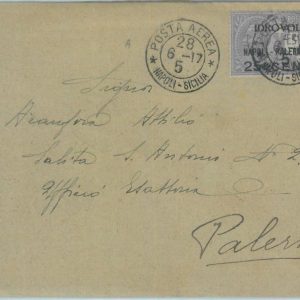 POSTA AEREA
28
6-17
5
NAPOLI-SICILIA
IDROVOL
NAPOLI PALER
25 CEN
Signor
Acanfora Attilio
Salita S. Antonio N 2
Ufficio Esattoria
Paler